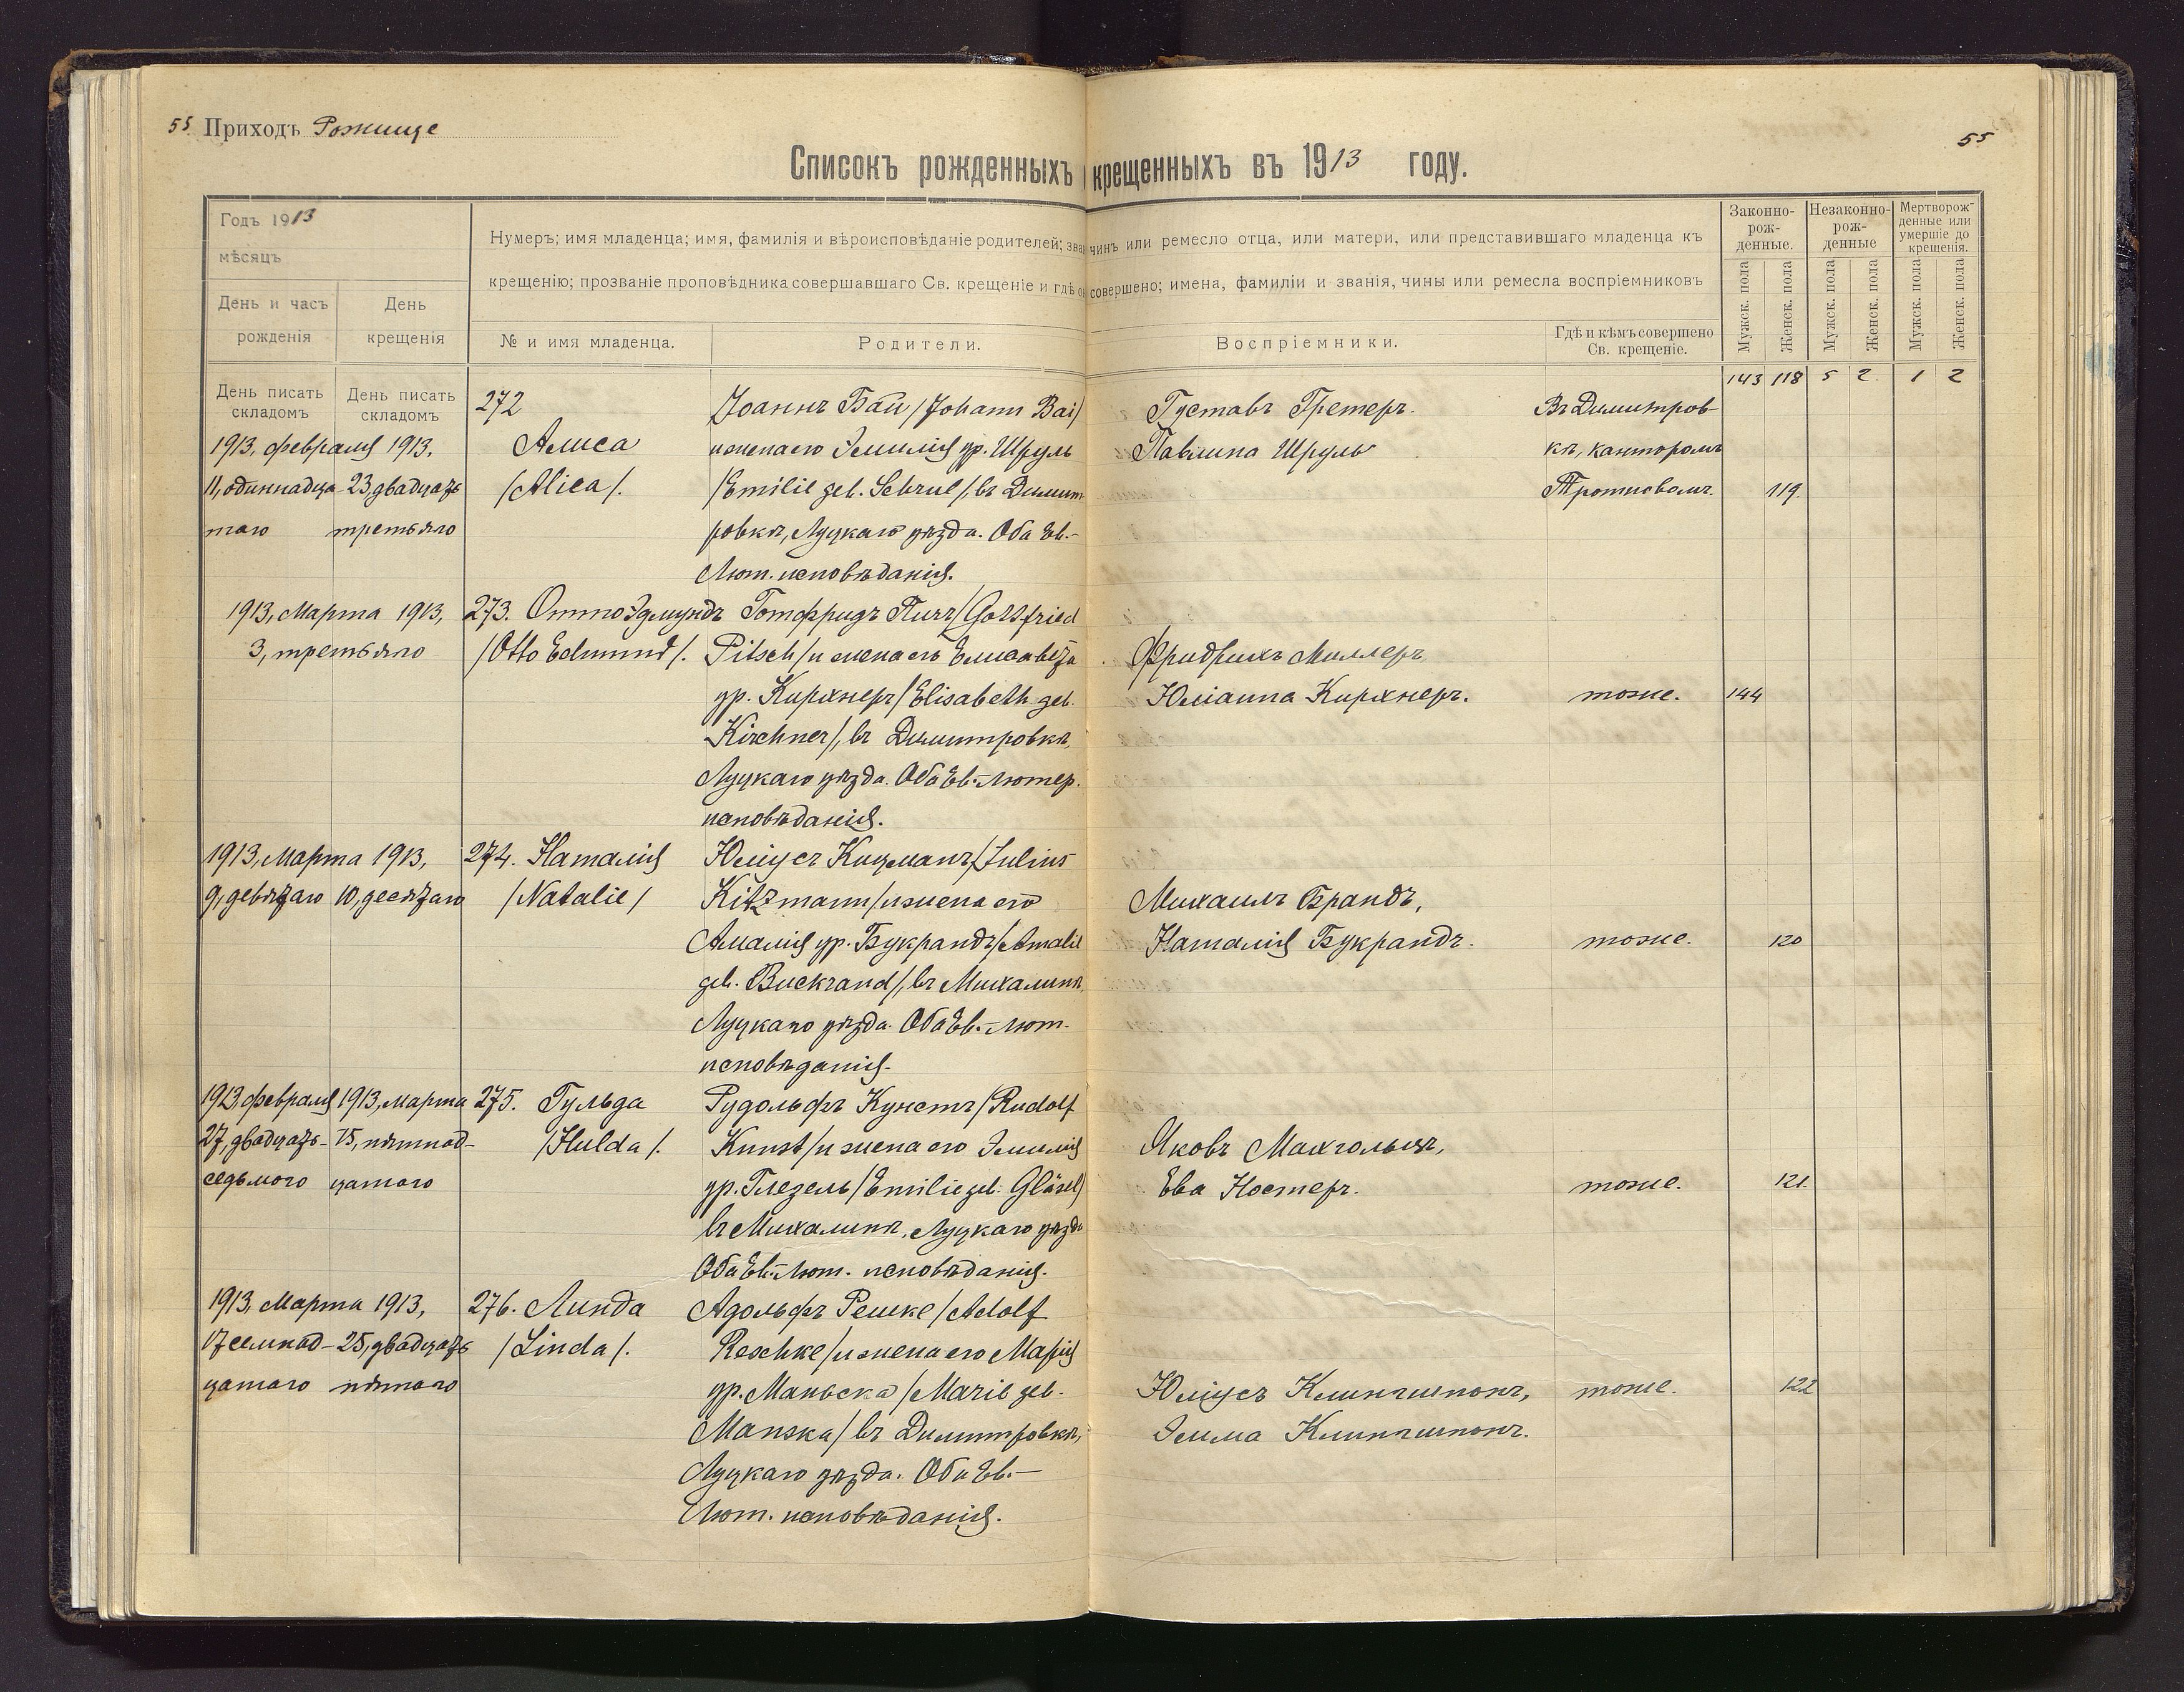 55 Приходъ Рожище
55
Списокъ рожденныхъ крещенныхъ въ 1913 году.
Годъ 1913
мѣсяцъ
День и часъ рожденія
День крещенія
Нумеръ; имя младенца; имя, фамилія и вѣроисповѣданіе родителей; зва чинъ или ремесло отца, или матери, или представившаго младенца къ
крещенію; прозваніе проповѣдника совершавшаго Св. крещеніе и гдѣ о совершено; имена, фамиліи и званія, чины или ремесла воспріемниковъ
№ и имя младенца.
Родители.
Воспріемники.
Гдѣ и кѣмъ совершено
Св. крещеніе.
Законно-
рож-
денные.
Незаконно-
рож-
денные
Мертворож-
денные или
умершіе до
крещенія.
Мужск. пола
Женск. пола
Мужск. пола
Женск. пола
Мужск. пола
Женск. пола
143 118 5 2 1 2
День писать
складомъ
День писать
складомъ
1913, февраля 1913.
11, одиннадца- 23, двадцать
таго третьяго
272
Алиса
/Alica/.
Іоаннъ Бай /Johann Bai/
и жена его Эмилія ур. Шруль
/Emilie geb. Schrul/, въ Димит-
ровкѣ, Луцкаго уѣзда. Оба Ев.-
Лют. исповѣданія.
Густавъ Гретеръ.
Павлина Шруль
Въ Димитров
кѣ, канторомъ
119.
1913, Марта 1913,
3, третьяго
273. Отто Эдмундъ
/Otto Edmund/.
Готфридъ Пичъ /Gottfried
Pitsch/ и жена его Елисавета
ур. Кирхнеръ /Elisabeth geb.
Kirchner/, въ Димитровкѣ,
Луцкаго уѣзда. Оба Ев.-Лютер.
исповѣданія.
Фридрихъ Миллеръ,
Юліанна Кирхнеръ.
тоже.
144
1913, Марта 1913,
9, девятаго 10, десятаго
274. Наталія
/Natalie/
Юліусъ Кицманъ /Julius
Kitzmann/ и жена его
Амалія ур. Букрандъ /Amalie
geb. Buckrand/, въ Михалинѣ,
Луцкаго уѣзда. Оба Ев.-Лют.
исповѣданія.
Михаилъ Брандъ,
Наталія Букрандъ.
тоже.
120
1913, февраля 1913, марта
27, двадцать- 15, пятнад-
седьмого цатаго
275. Гульда
/Hulda/.
Рудольфъ Кунстъ /Rudolf
Kunst/ и жена его Эмилія
ур. Глезель /Emilie geb. Gläsel/
въ Михалинѣ, Луцкаго уѣзда
Оба Ев.-Лют. исповѣданія.
Яковъ Махгольцъ,
Ева Ностеръ.
тоже.
121.
1913, Марта 1913,
17 семнад- 25, двадцать
цатаго пятаго
276. Линда
/Linda/.
Адольфъ Решке /Adolf
Reschke/ и жена его Марія
ур. Маньска /Marie geb.
Manska/ въ Димитровкѣ,
Луцкаго уѣзда. Оба Ев.-
Лют. исповѣданія.
Юліусъ Клингшпонъ,
Эмма Клингшпонъ.
тоже.
122